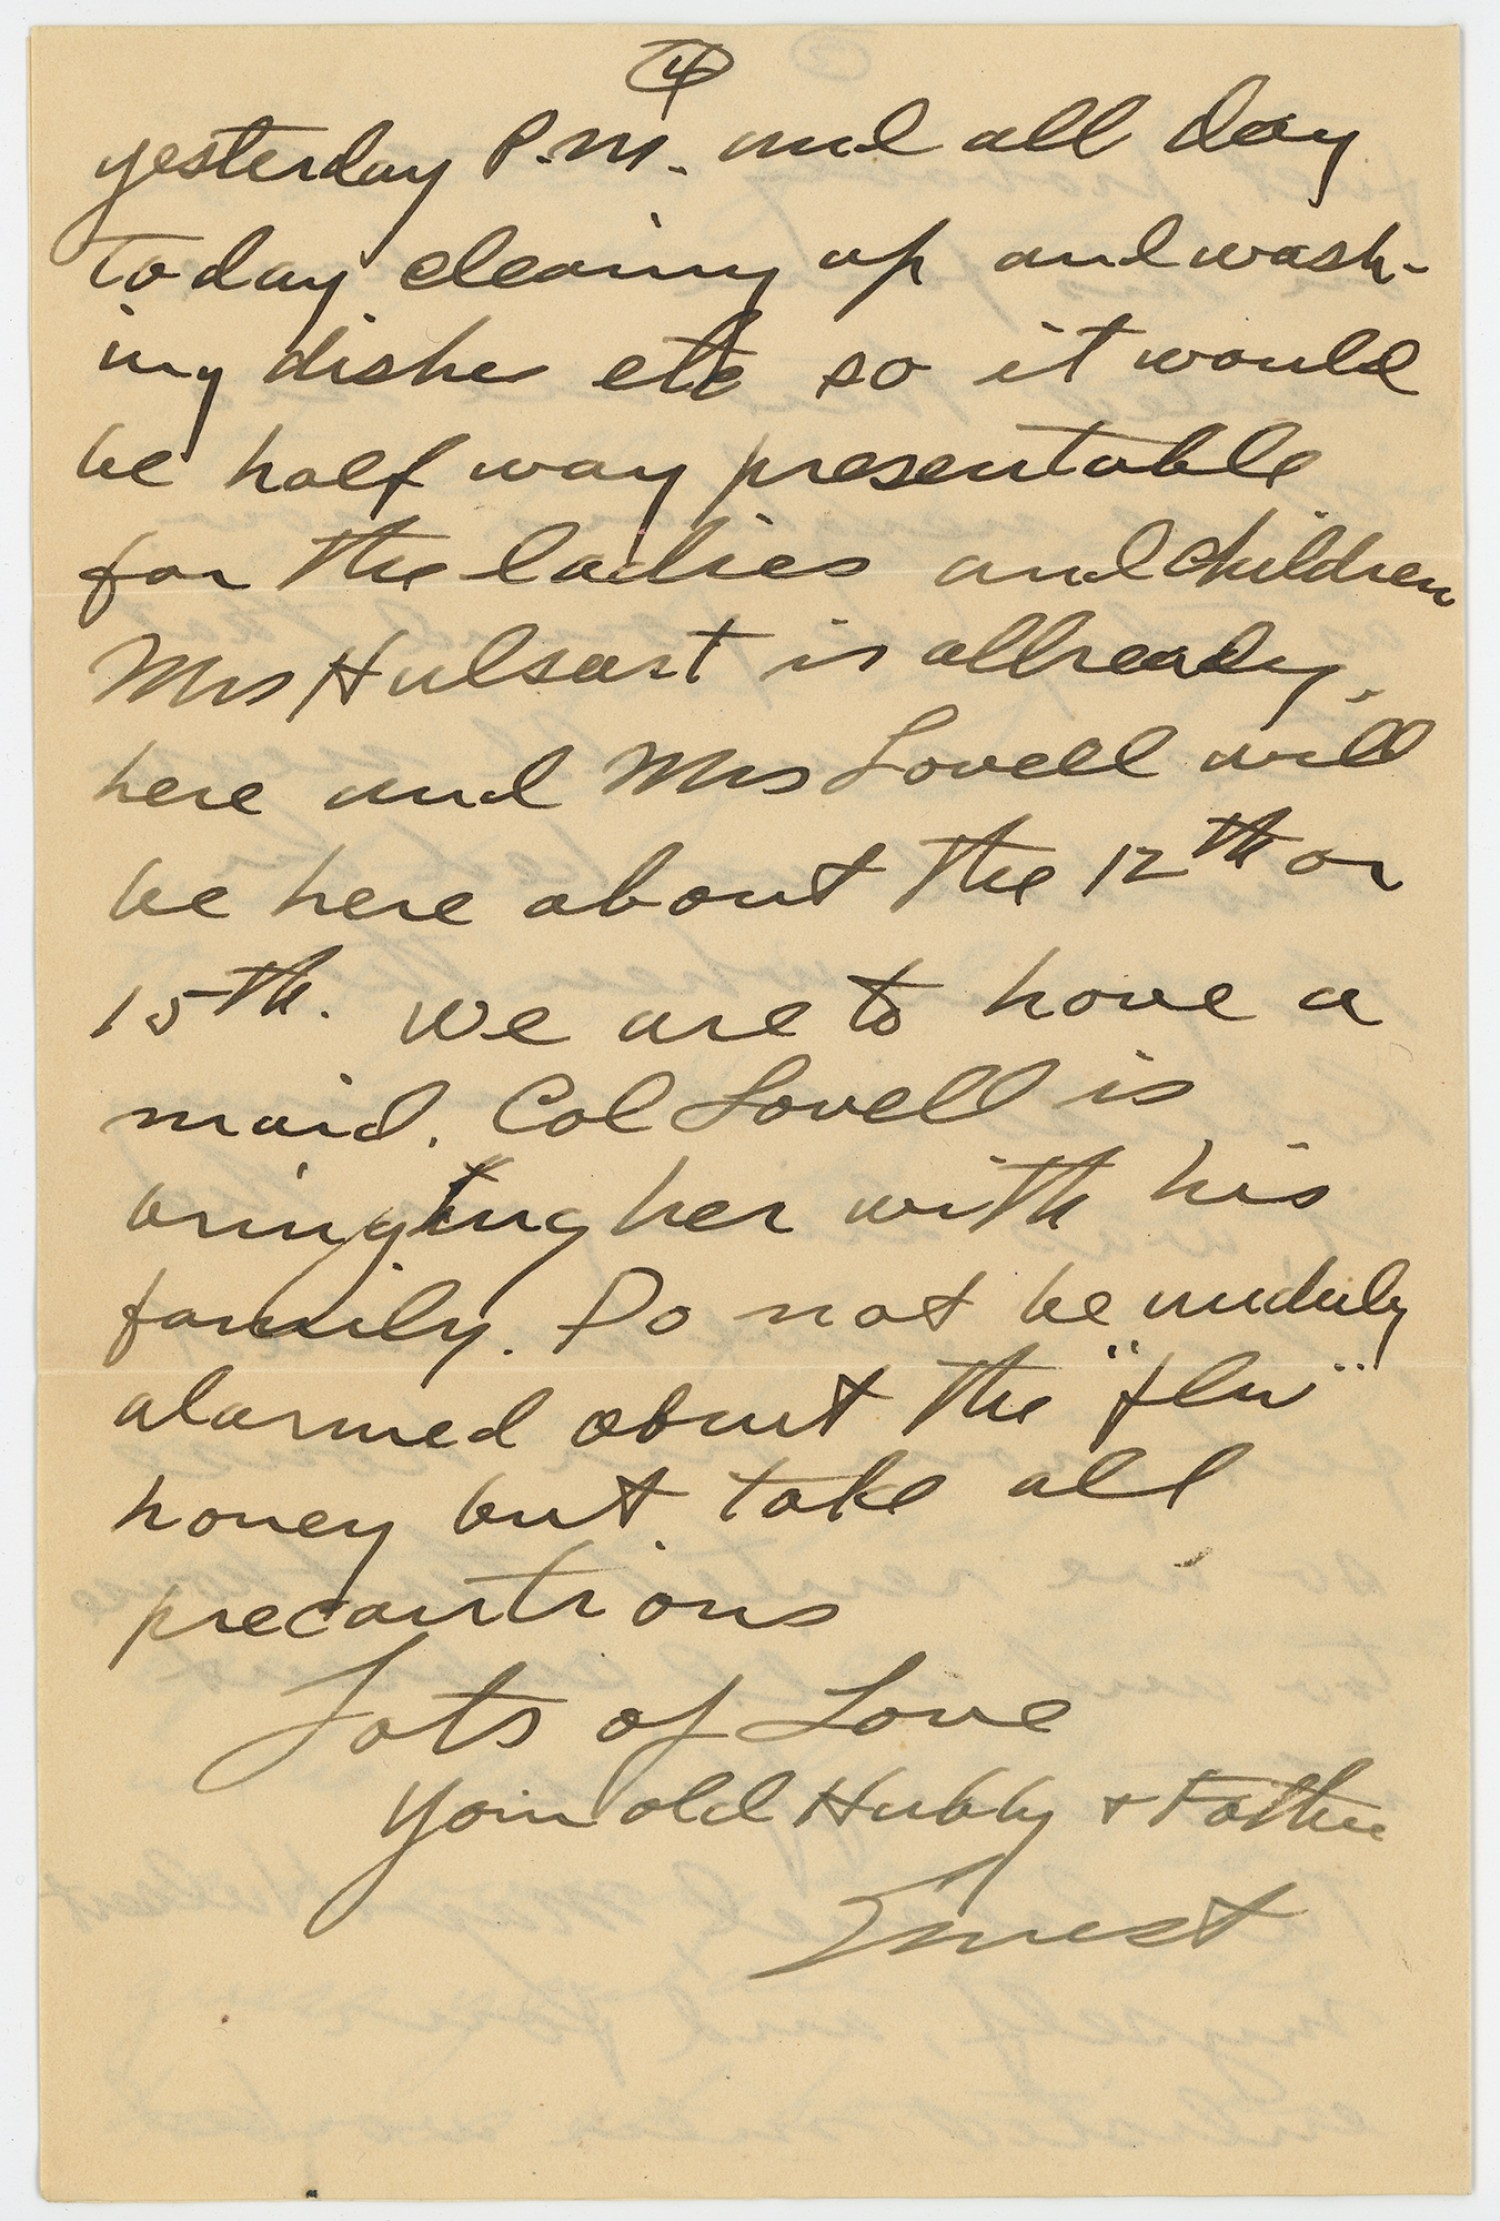 4
yesterday P.M. and all day
today cleaning up and wash-
ing dishes etc so it would
be half way presentable
for the ladies and children
Mrs Hulsart is allready
here and Mrs Lovell will
be here about the 12th or
15th. We are to have a
maid. Col Lovell is
bringing her with his
family. Do not be unduly
alarmed about the "flu"
honey but take all
precautions
Lots of Love
Your old Hubby + Father
Ernest